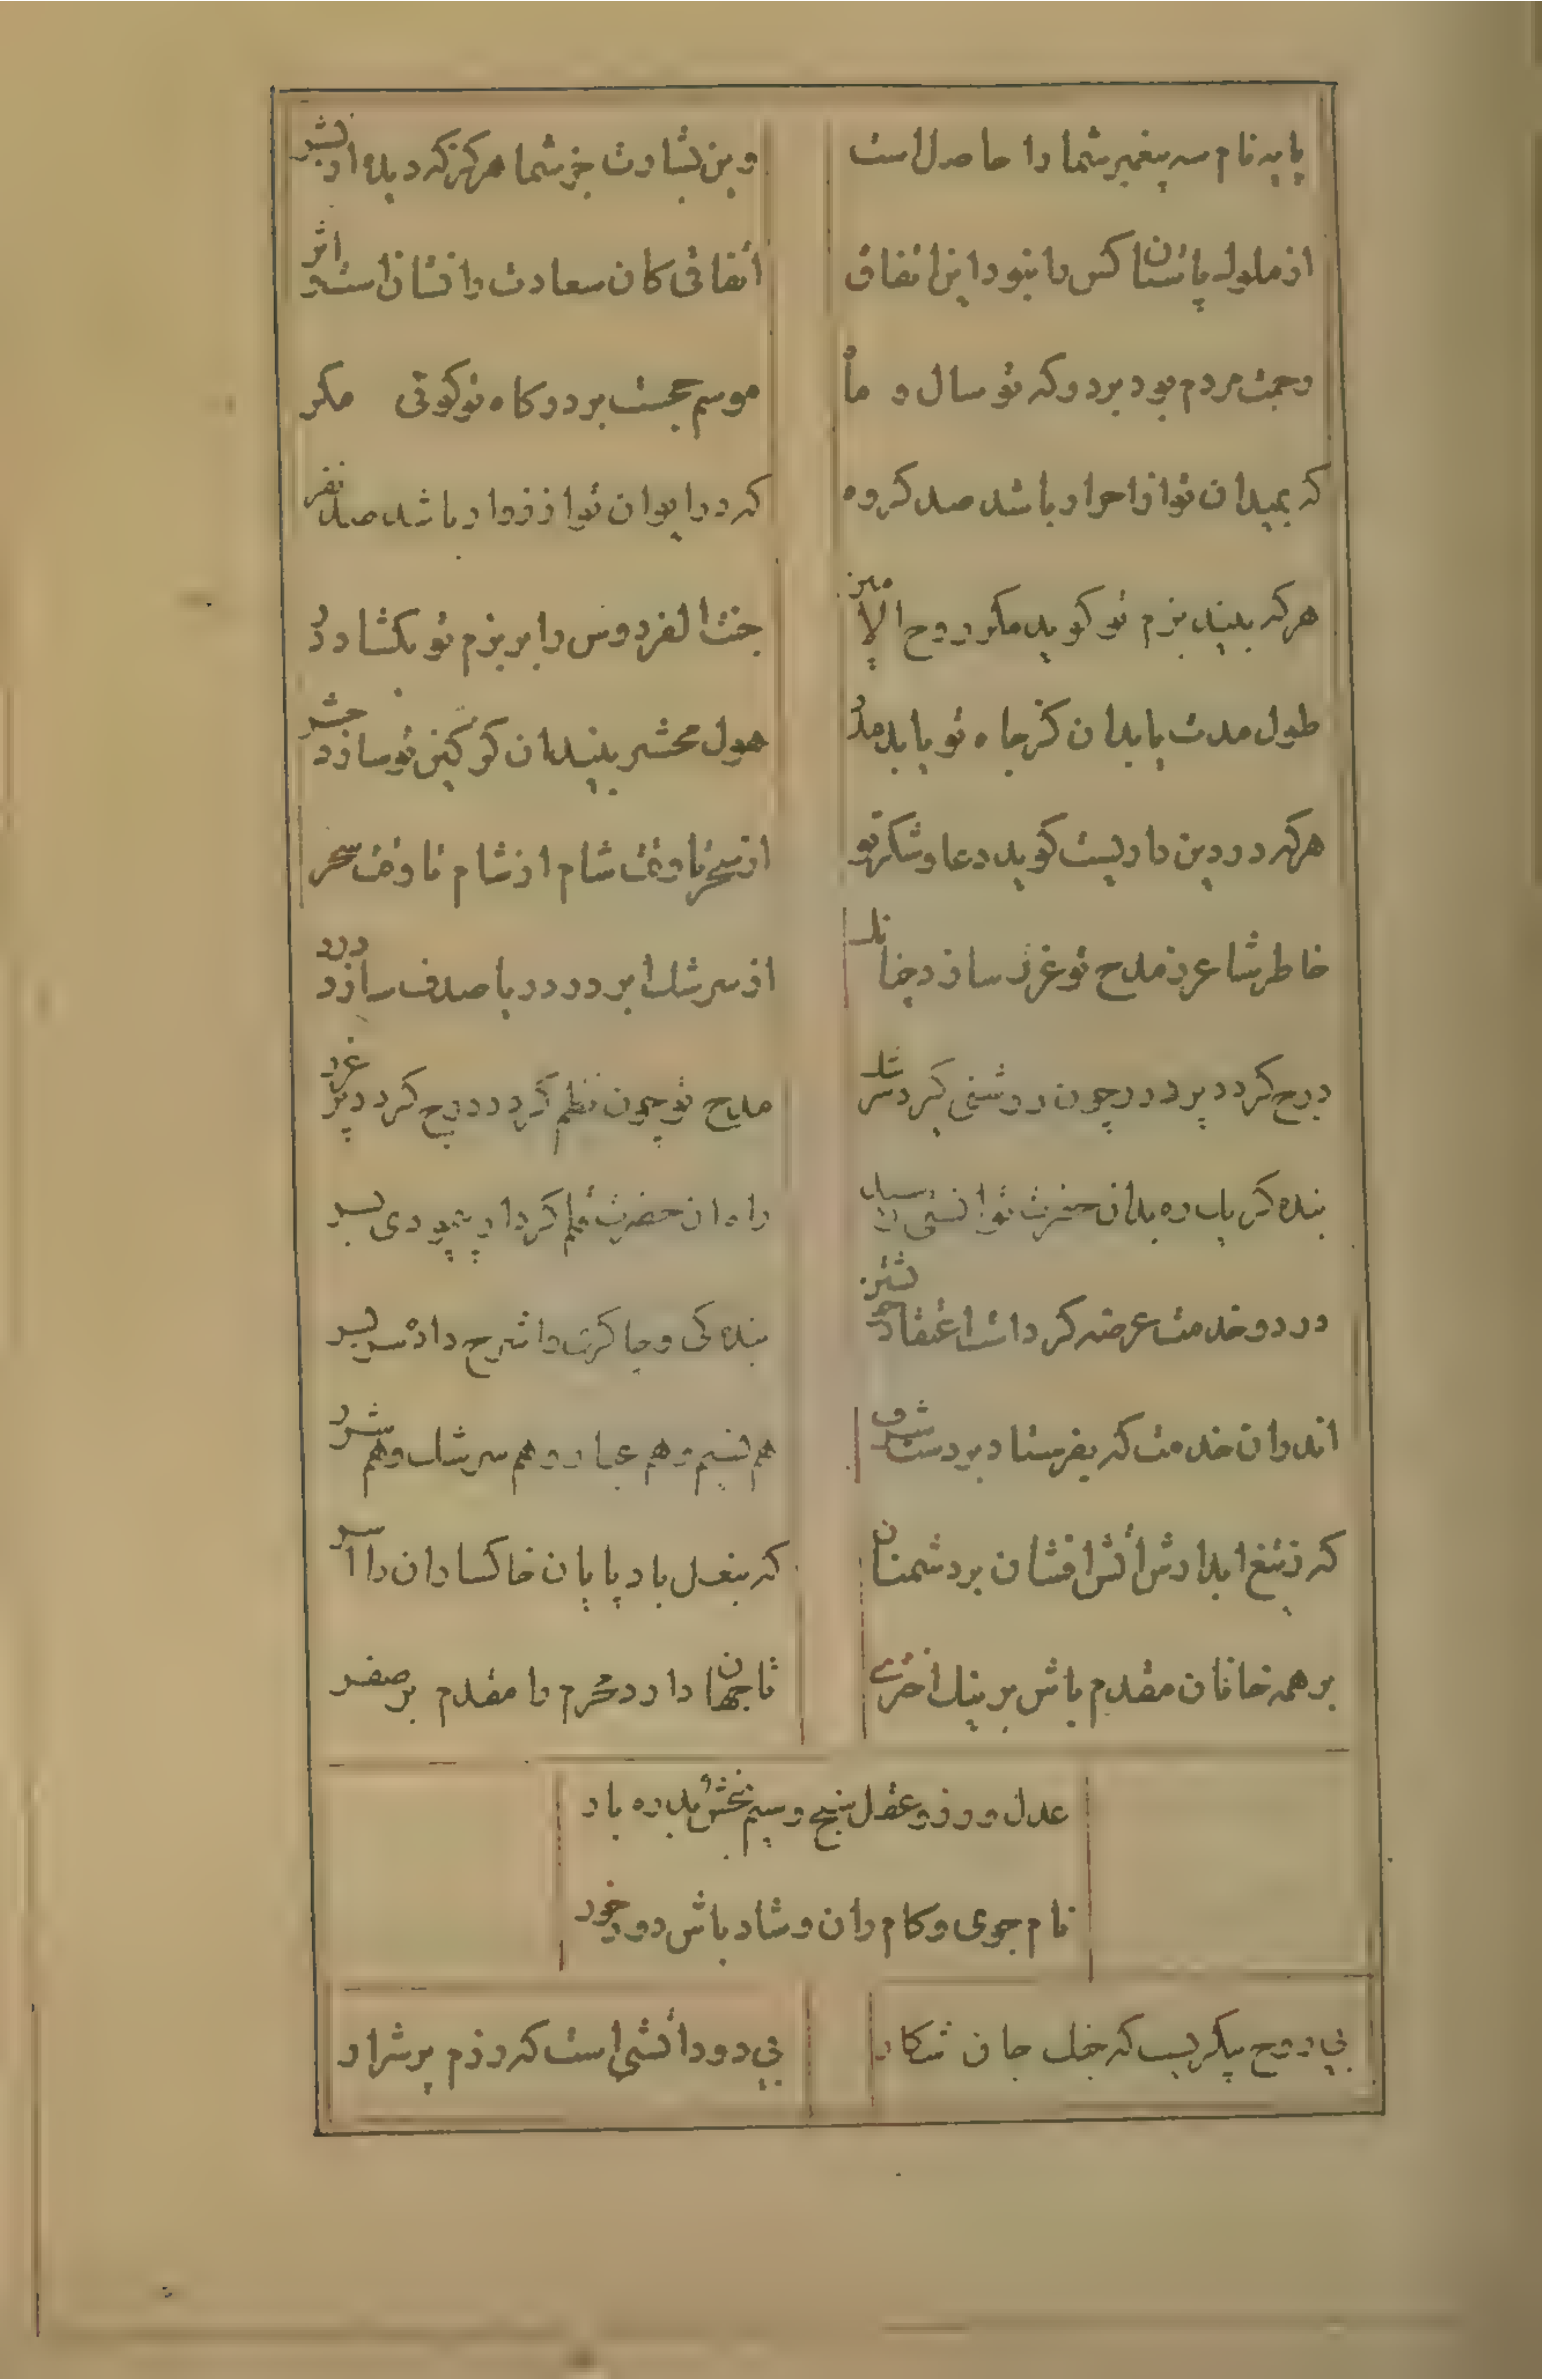 پایه نام سه پیغمبر شما را حاصل است
وین بشارت جز شما هرگز که دید از بشر
از ملوک باستان کس را نبود این اتفاق
اتفاقی کان سعادت را نشان است و اثر
زحمت مردم بود بر درکه تو سال و ماه
موسم حجست بر درگاه تو کوئی مکر
که بمیدان تو از احرار باشد صد کروه
که در ایوان تو از زوار باشد صد نفر
هرکه بیند بزم تو کوید مکر روح الامین
جنت الفردوس را بر بزم تو بکشاد در
طول مدت یابد ان کز جاه تو یابد مدد
هول محشر بیند ان کو کین تو سازد حشر
هرکه در دین داریست کوید دعا و شکر تو
از سحر تا وقت شام از شام تا وقت سحر
خاطر شاعر ز مدح تو غرر سازد چنانک
از سرشک ابر در دریا صدف سازد درر
درج کردد پر درر چون روشنی کیرد
مدح تو چون نظم کردد درج کردد پر غرر
بنده کر یاب ره بدان حضرت توانستی
راه ان حضرت قلم کردار پیمودی بسر
در دو خدمت عرضه کرداست اعتقاد خویشتن
بنده کی و چاکریت را شرح داده سر بسر
اندر ان خدمت که بفرستاد بر دست شرف
هم نسیم و هم عبار و هم سرشک و هم شرر
که ز تیغ ابدارش آتش افشان بر دشمنان
که بنعل باد پایان خاکساران را سر
بر همه خانان مقدم باش بر نیک اختری
تا جهان دارد محرم را مقدم بر صفر
عدل ورز و عقل سنج و سیم بخش و بدره بار
نام جوی و کام ران و شاد باش و دور خور
بی روح پیکریست که جنک جان شکار
بی دود آتشی است که رزم پر شرار